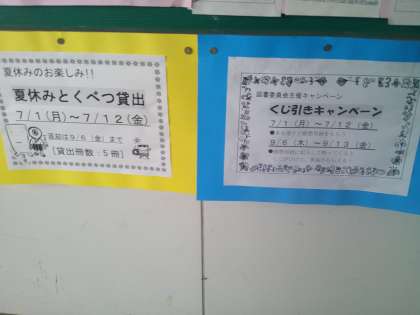 夏休みのお楽しみ!!
夏休みとくべつ貸出
7/1(月)~7/12(金)
返却は9/6(金)まで
[貸出冊数:5冊]
図書委員会主催キャンペーン
くじ引きキャンペーン
7/1(月)~7/12(金)
9/6(木)~9/13(金)